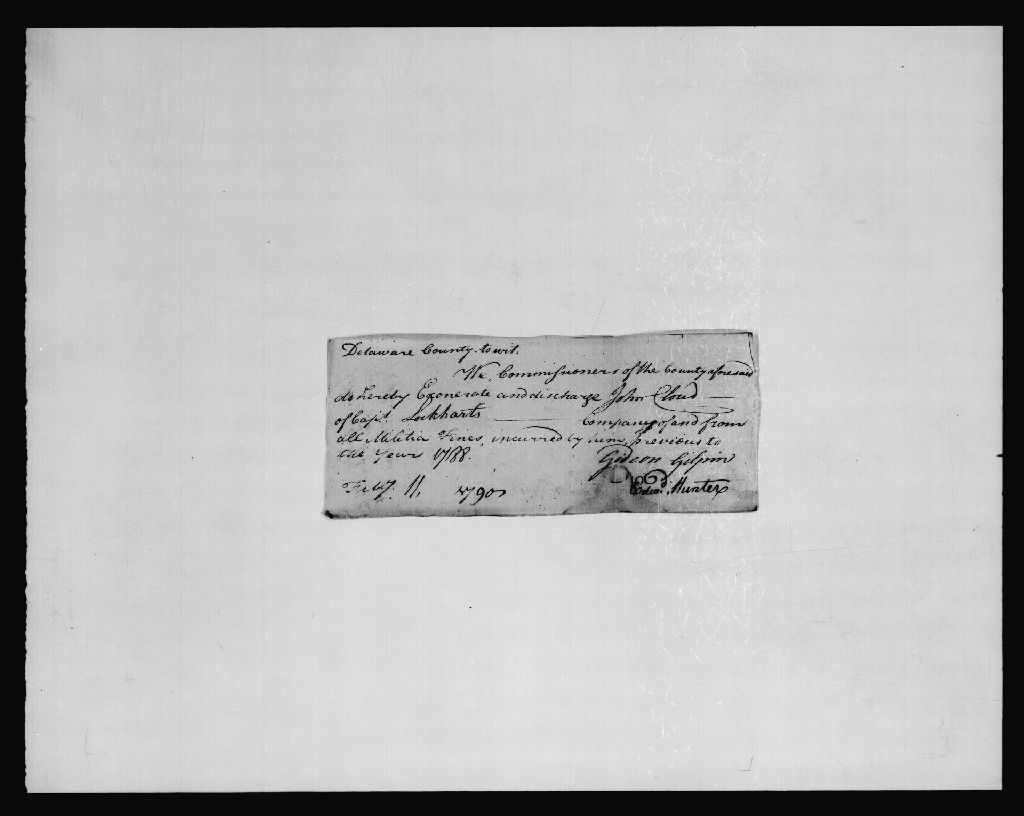 Delaware County. towit.
We, Commissioners of the County aforesaid
do hereby Exonerate and discharge John Cloud —
of Capt. Lockharts — Company of and from
all Militia Fines, incurred by him, previous to
the Year 1788.
Gideon Gilpin
Feby. 11, 1790
Edwd. Hunter